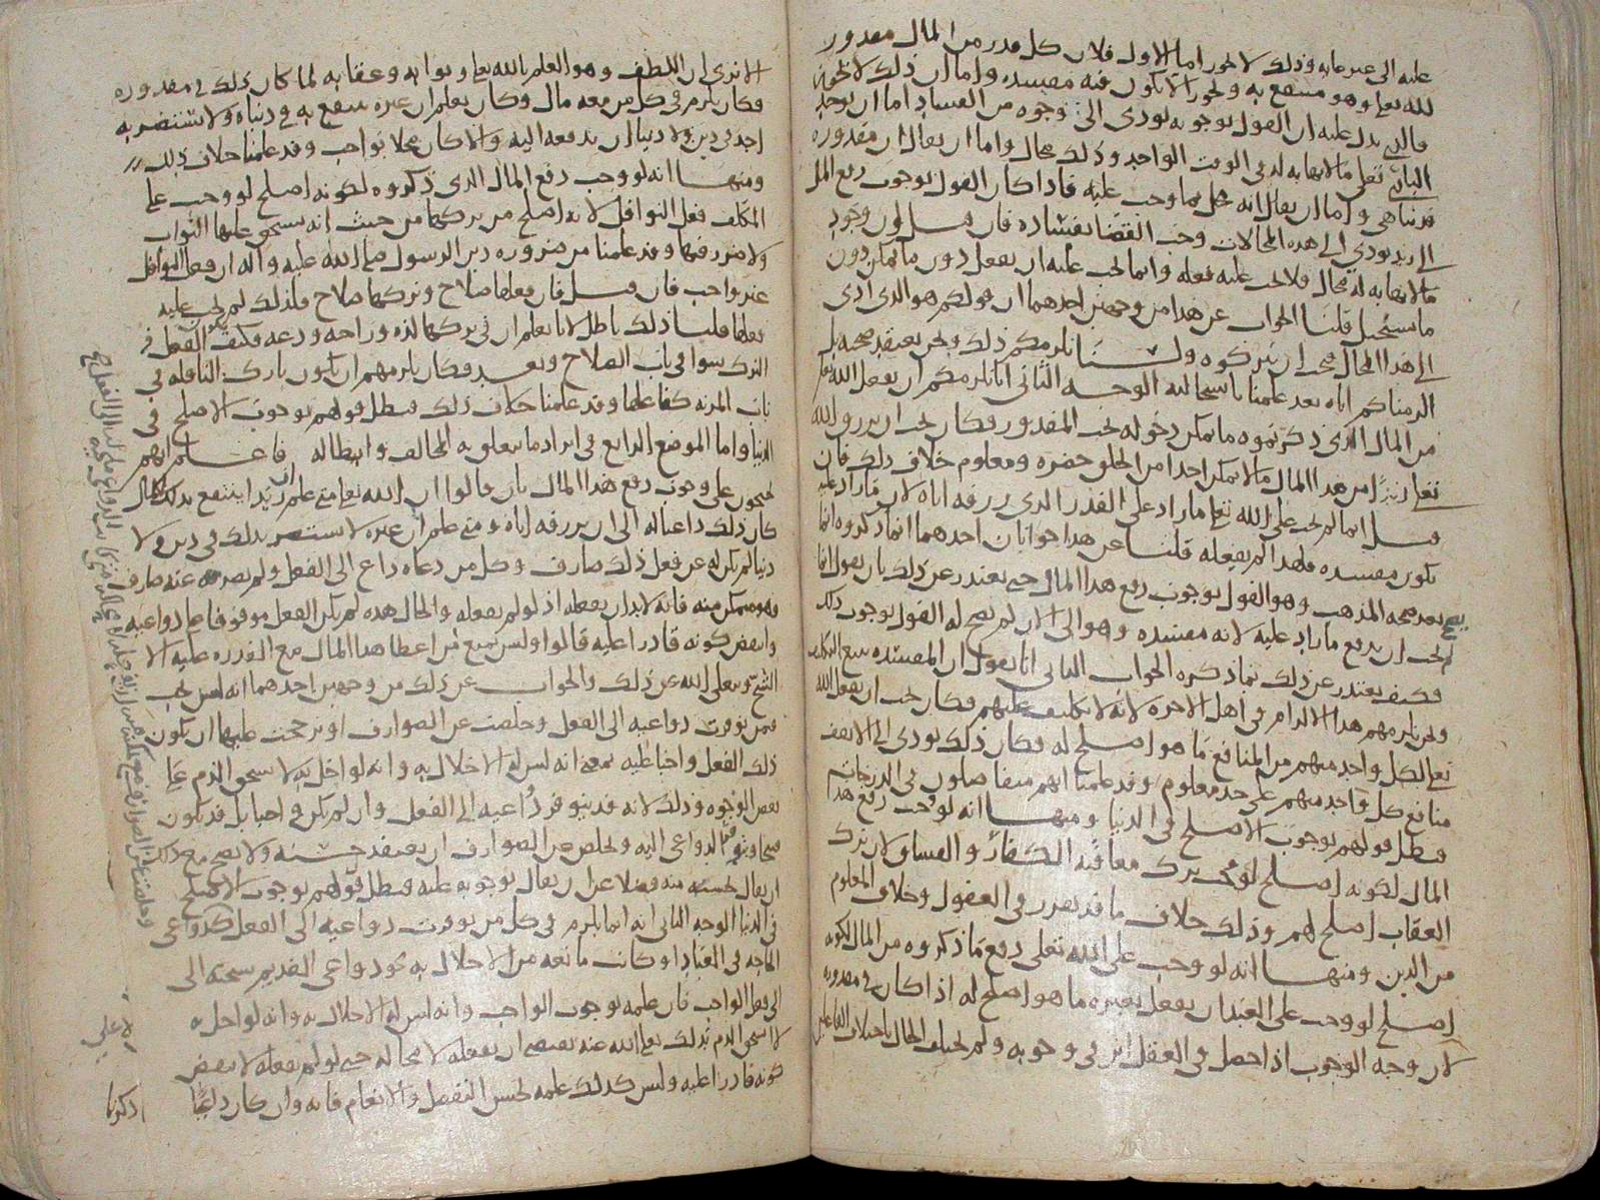 عليه الى غير غايه وذلك لا يجوز اما الاول فلان كل قدر من المال مقدور
لله تعالى وهو منتفع به ويجوز الا يكون فيه مفسده واما ان ذلك لا يجوز
فالذي يدل عليه ان القول بوجوبه يودي الى وجوه من الفساد اما ان يوجد
الباري تعالى ما لا نهايه له في الوقت الواحد وذلك محال واما ان يقال ان مقدوره
قد تناهى واما ان يقال انه مخل بما وجب عليه فاذا كان القول بوجوب دفع المال
الى زيد يودي الى هذه المحالات وجب القضا بفساده فان قيل ان وجود
ما لا نهايه له محال فلا يجب عليه فعله وانما يجب عليه ان يفعل دون ما يمكن دون
ما يستحيل قلنا الجواب عن هذا من وجهين احدهما ان قولكم هو الذي ادى
الى هذا المحال فيجب ان تتركوه ولسنا نلزمكم ذلك ونحن نعتقد صحته بل
الزمناكم اياه بعد علمنا باستحالته الوجه الثاني انا نلزمكم ان يفعل الله تعالى
من المال الذي ذكرتموه ما يمكن دخوله تحت المقدور فكان يجب ان يرزق الله
تعالى زيدًا من هذا المال ما لا يمكن احدا من الخلق حصره ومعلوم خلاف ذلك فان
قيل انما لم يجب على الله تعالى ما زاد على القدر الذي رزقه اياه لان ما زاد عليه
يكون مفسده فلهذا لم يفعله قلنا عن هذا جوابان احدهما ان ما ذكروه انما
يصح بعد صحه المذهب وهو القول بوجوب دفع هذا المال حتى يعتذر عن ذلك بان يقول انما
لم يجب ان يدفع ما زاد عليه لانه مفسده وهو الى الان لم يصح له القول بوجوب ذلك
فكيف يعتذر عن ذلك بما ذكره الجواب الثاني انا نقول ان المفسده تتبع التكليف
ونحن نلزمهم هذا الالزام في اهل الاخره لانه لا تكليف عليهم فكان يجب ان يفعل الله
تعالى لكل واحد منهم من المنافع ما هو اصلح له فكان ذلك يودي الى الا يقف
منافع كل واحد منهم على حد معلوم وقد علمنا انهم متفاضلون في الدرجات
فبطل قولهم بوجوب الاصلح في الدنيا ومنها انه لو وجب دفع هذا
المال لكونه اصلح لوجب ترك معاقبه الكفار والفساق لان ترك
العقاب اصلح لهم وذلك خلاف ما قد تقرر في العقول وخلاف المعلوم
من الدين ومنها انه لو وجب على الله تعالى دفع ما ذكروه من المال لكونه
اصلح لوجب على العبد ان يفعل بغيره ما هو اصلح له اذا كان في مقدوره
لان وجه الوجوب اذا حصل في الفعل اثر في وجوبه ولم يختلف الحال باختلاف الفاعلين
الا ترى ان اللطف وهو العلم بالله تعالى وثوابه وعقابه لما كان ذلك في مقدوره
فكان يلزم في كل من معه مال وكان يعلم ان غيره ينتفع به في دنياه ولا يستضر به
احد في دين ولا دنيا ان يدفعه اليه والا كان مخلا بواجب وقد علمنا خلاف ذلك
ومنها انه لو وجب دفع المال الذي ذكروه لكونه اصلح لوجب على
المكلف فعل النوافل لانه اصلح من تركها من حيث انه يستحق عليها الثواب
ولا ضرر فيها وقد علمنا من ضروره دين الرسول صلى الله عليه واله ان فعل النوافل
غير واجب فان قيل فان فعلها صلاح وتركها صلاح فلذلك لم يجب عليه
فعلها قلنا ذلك باطل لانا نعلم ان في تركها لذه وراحه ودعه فكيف يكون الفعل في
الترك سوا في باب الصلاح وبعد فكان يلزمهم ان يكون تارك النافله في
باب المزيه كفاعلها وقد علمنا خلاف ذلك فبطل قولهم بوجوب الاصلح في
الدنيا واما الموضع الرابع في ايراد ما يتعلق به المخالف وابطاله فاعلم انهم
يحتجون على وجوب دفع هذا المال بان قالوا ان الله تعالى متى علم ان زيدا ينتفع بذلك المال
كان ذلك داعيا له الى ان يرزقه اياه ومتى علم ان غيره لا يستضر بذلك في دين ولا
دنيا لم يكن له عن فعل ذلك صارف وكل من دعاه داع الى الفعل ولم يصرفه عنه صارف
وهو ممكن منه فانه لا بد ان يفعله اذ لو لم يفعله والحال هذه لم يكن الفعل موقوفا على دواعيه
وانقض كونه قادرا عليه قالوا وليس يمنع من اعطا هذا المال مع القدره عليه الا
الشح وتعالى الله عن ذلك والجواب عن ذلك من وجهين احدهما انه ليس يجب
فيمن توفرت دواعيه الى الفعل وخلصت عن الصوارف او ترجحت عليها ان يكون
ذلك الفعل واجبا عليه بمعنى انه ليس له الاخلال به وانه لو اخل به لاستحق الذم على
بعض الوجوه وذلك لانه قد يتوفر دُاعيه الى الفعل وان لم يكن واجبا بل قد يكون
قبيحا وتتوفر الدواعي اليه ويخلص عن الصوارف ان يعتقد حسنه ولا يصح مع ذلك
ان يقال بحسنه منه فضلا عن ان يقال بوجوبه عليه فبطل قولهم بوجوب الاصلح
في الدنيا الوجه الثاني انه انما يلزم في كل من توفرت دواعيه الى الفعل كدواعي
الحاجه في العباد او كانت مانعه من الاخلال به نحو دواعي القديم سبحانه الى
الى فعل الواجب فان علمه بوجوب الواجب وانه ليس له الاخلال به وانه لو اخل به
لاستحق الذم بذلك تعالى الله عنه يقتضي ان يفعله لا محاله حتى لو لم يفعله لانقض
كونه قادرا عليه وليس كذلك علمه بحسن التفضل والانعام فانه وان كان داعيًا
لا على
اذ كونها